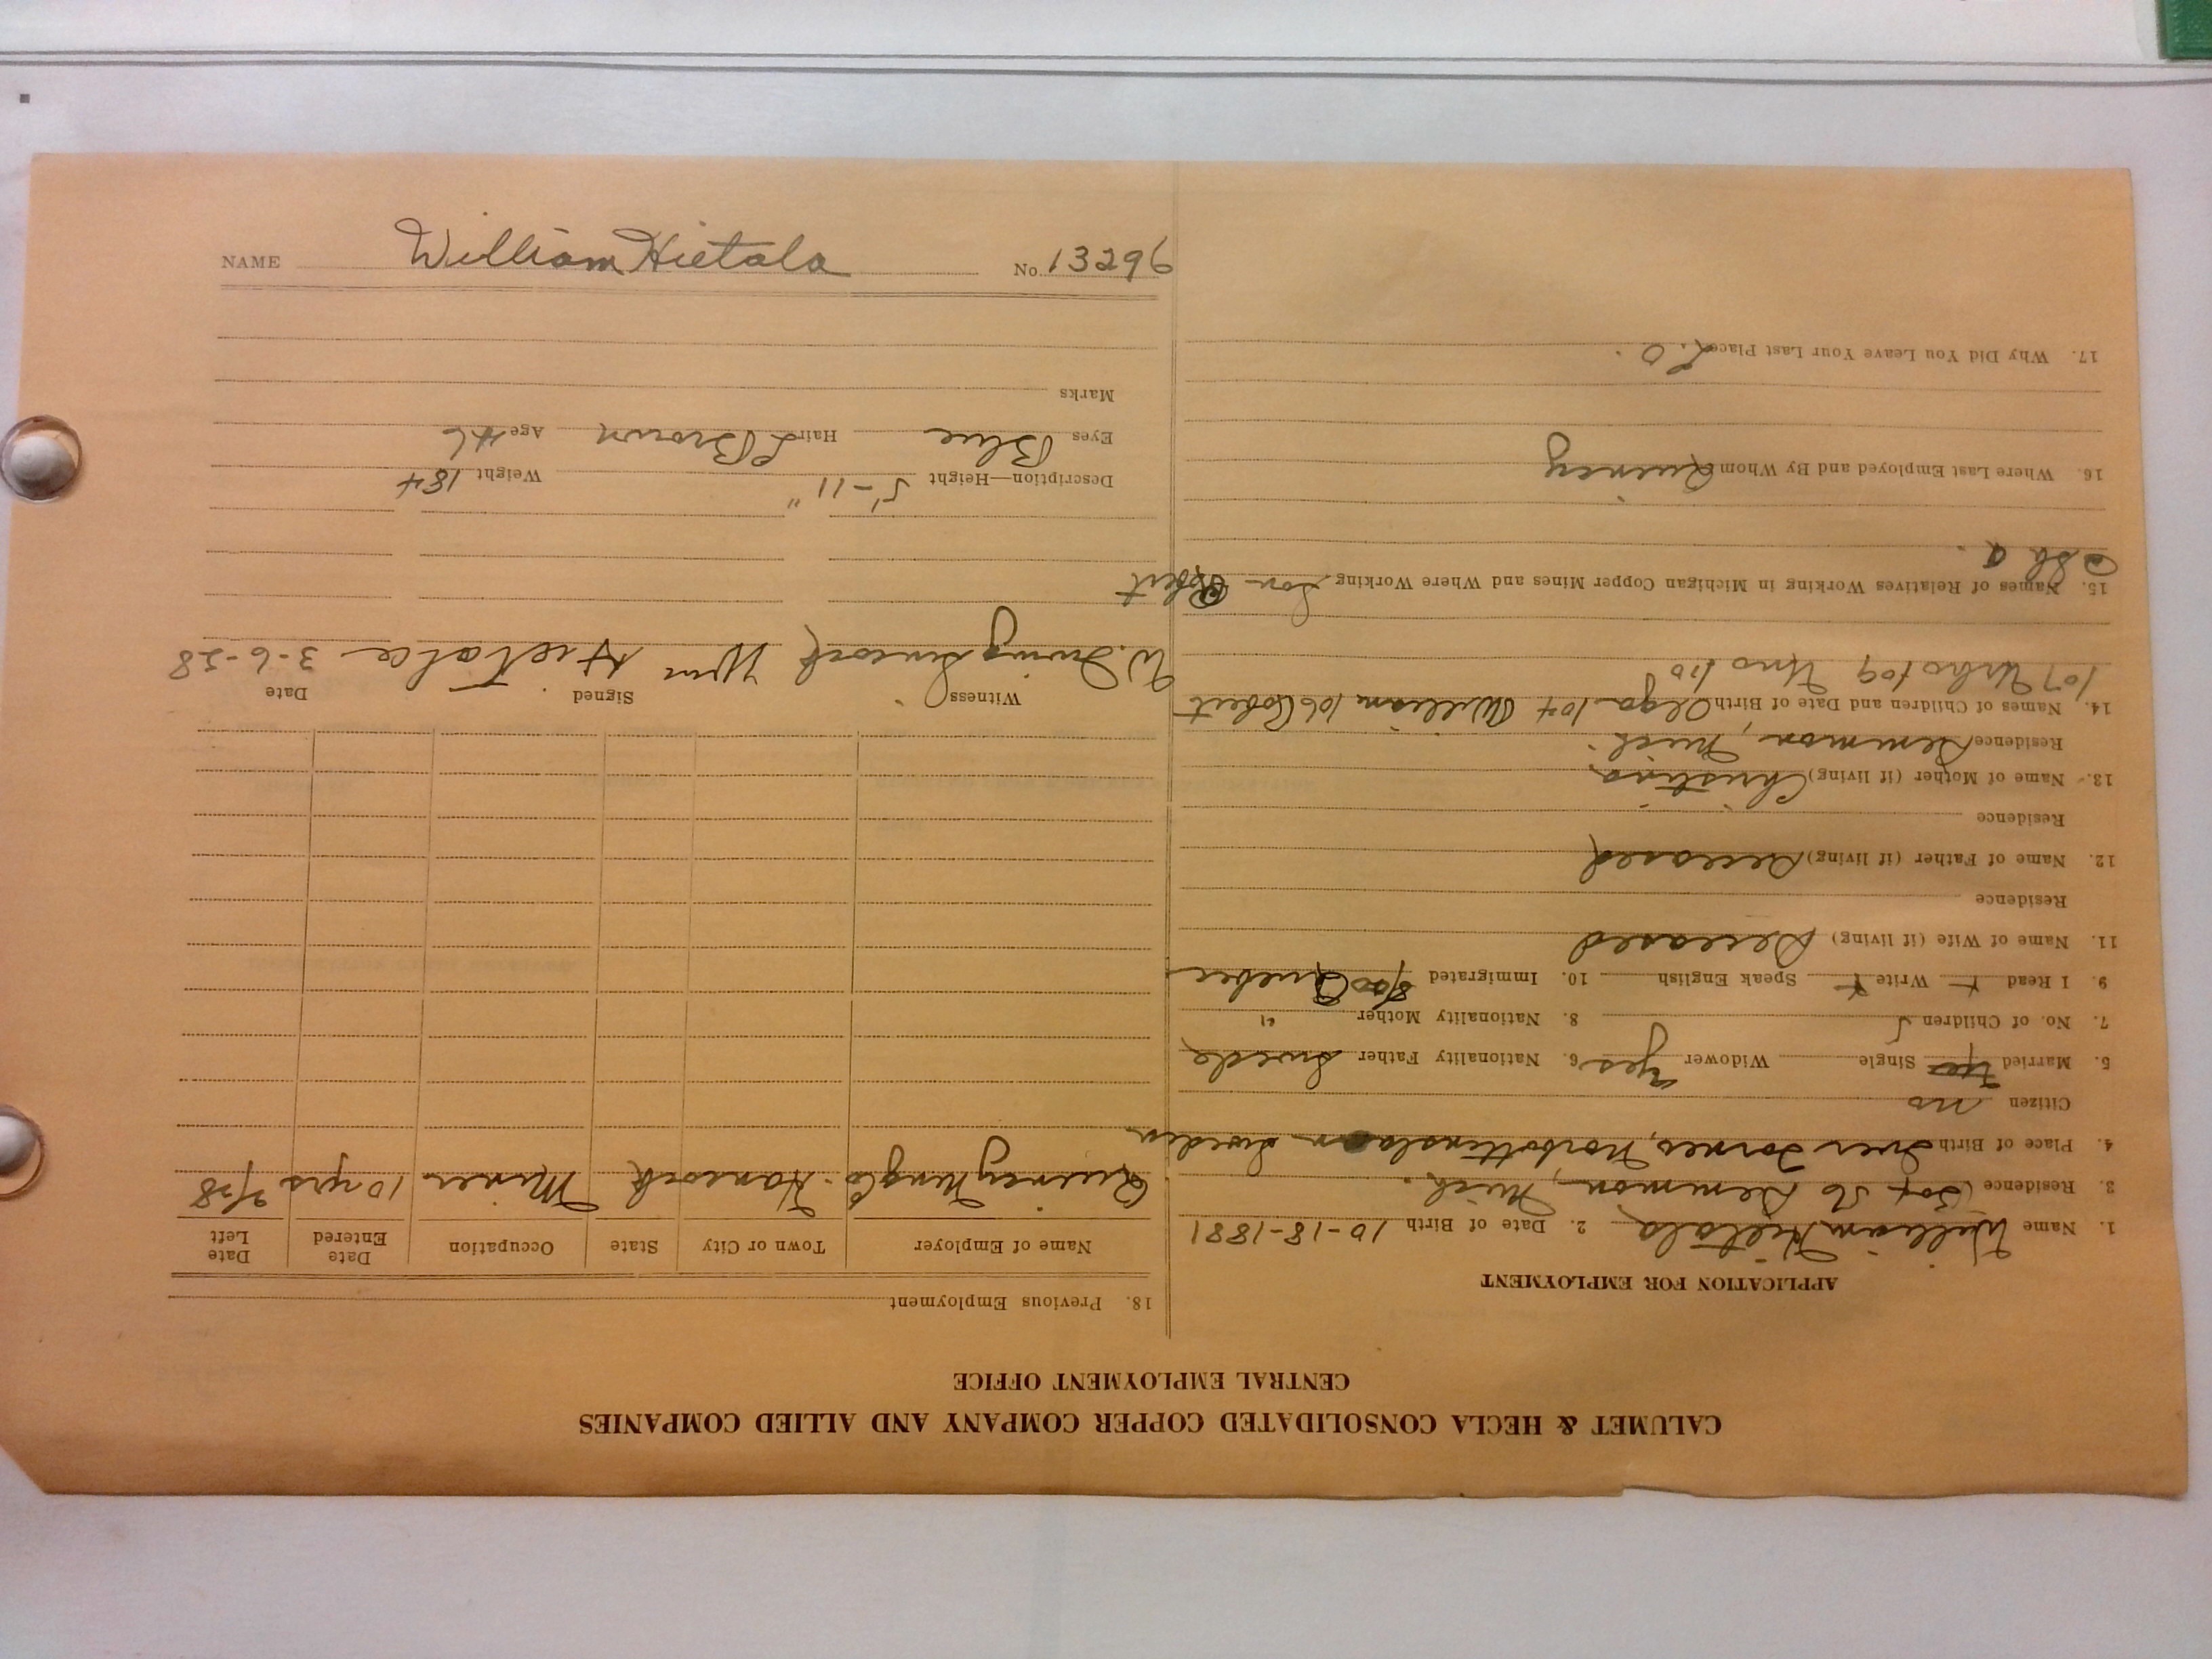 CALUMET & HECLA CONSOLIDATED COPPER COMPANY AND ALLIED COMPANIES
CENTRAL EMPLOYMENT OFFICE
APPLICATION FOR EMPLOYMENT
1. Name William Hietala 2. Date of Birth 10-18-1881
3. Residence Box 56 Demmon, Mich.
4. Place of Birth Iver Tornes, Sweden
Citizen no
5. Married Single Widower yes 6. Nationality Father Swede
7. No. of Children 5 8. Nationality Mother "
9. I Read Write Speak English 10. Immigrated Quebec
11. Name of Wife (if living) Deceased
Residence
12. Name of Father (if living) Deceased
Residence
13. Name of Mother (if living) Christina
Residence Demmon, Mich.
14. Names of Children and Date of Birth Olga 104 William 106 Robert
107 Urho 109 Uno 110
15. Names of Relatives Working in Michigan Copper Mines and Where Working Son Robert
16. Where Last Employed and By Whom Quincy
17. Why Did You Leave Your Last Place L.O.
18. Previous Employment
Name of Employer Town or City State Occupation Date Entered Date Left
Quincy Mng Co. Hancock Miner 10 yrs 2/28
Witness Signed Date
W. Irving Wm Hietala 3-6-28
Description—Height 5'-11" Weight 184
Eyes Blue Hair L Brown Age 46
Marks
NAME William Hietala No. 13296